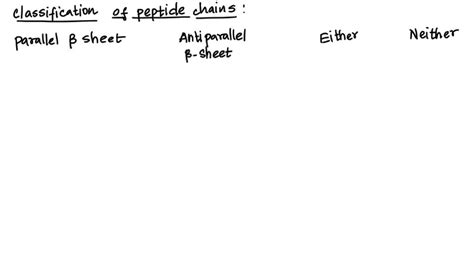 classification of peptide chains :
parallel β sheet Antiparallel β-sheet Either Neither